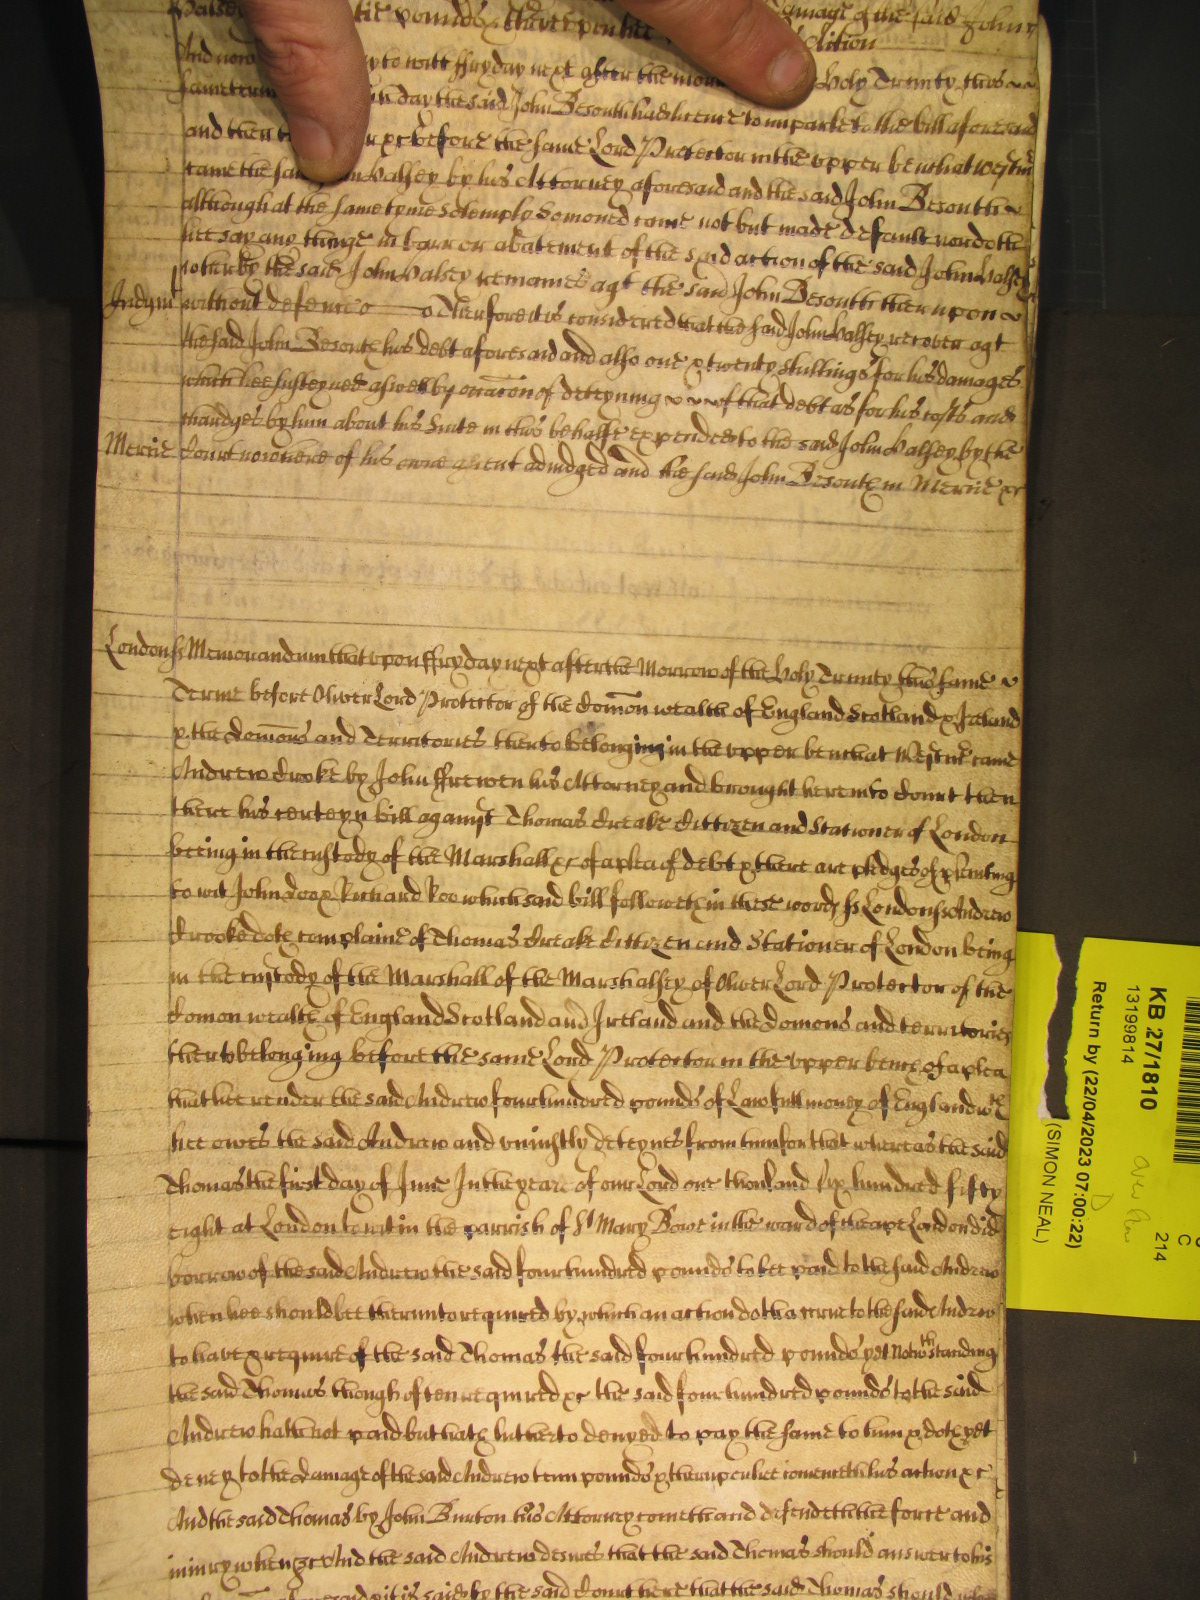 tie pounds & therevpon hee damage of the said John
dition
And now to witt ffryday next after the morr Holy Trinity this
same terme day the said John Besouth had licence to imparle to the bill aforesaid
and then t r &c before the same Lord Protector in the vpper bench at Westmr
came the said Halsey by his Attorney aforesaid and the said John Besouth
although at the same tyme solemply somoned came not but made default nor doth
hee say any thinge in barr or abatement of the said action of the said John Halsey
wherby the said John Halsey remaines agt the said John Besouth therupon
Judgmt without defence Therfore it is considered that the said John Halsey recover agt
the said John Besouth his debt aforesaid and also one & twenty shillings for his damages
which hee susteyned aswell by occacon of deteyning of that debt as for his costs and
chardges by him about his Suite in this behalfe expended to the said John Halsey by the
Mercie Court now here of his owne assent adiudged and the said John Besouth in Mercie &c
London ss Memorandum that vpon ffryday next after the Morrow of the Holy Trinity this same
Terme before Oliver Lord Protector of the Comon wealth of England Scotland & Ireland
& the domons and Territories therto belonging in the vpper bench at Westmr came
Andrew Crooke by John ffrewen his Attorney and brought here into Court then
there his certeyn bill against Thomas Creake Cittizen and Stationer of London
beeing in the custody of the Marshall &c of a plea of debt & there are pledges of psenting
to wit John doo & Richard Roo which said bill followeth in these words ss London ss Andrew
Crooke doth complaine of Thomas Creake Cittizen and Stationer of London being
in the custody of the Marshall of the Marshalsey of Oliver Lord Protector of the
Comon wealth of England Scotland and Ireland and the domons and territories
therto belonging before the same Lord Protector in the vpper bench of a plea
that hee render the said Andrew four hundred pounds of Lawfull money of England wch
hee owes the said Andrew and vniustly deteynes from him for that whereas the said
Thomas the first day of June In the yeare of our Lord one thousand six hundred fifty
eight at London to wit in the parrish of St Mary Bowe in the ward of Cheape London did
borrow of the said Andrew the said four hundred pounds to bee paid to the said Andrew
when hee should bee therunto required by which an action doth accrue to the said Andrew
to have & require of the said Thomas the said four hundred pounds yet notwthstanding
the said Thomas though often required &c the said four hundred pounds to the said
Andrew hath not paid but hath hitherto denyed to pay the same to him & doth yet
deney to the damage of the said Andrew tenn pounds & therupon hee comenceth his action &c
And the said Thomas by John Burton his Attorney cometh and defendeth the force and
iniury when &c And the said Andrew desires that the said Thomas should answer to his
said it is said by the said Court here that the said Thomas should
KB 27/1810
13199814
Return by (22/04/2023 07:00:22)
(SIMON NEAL)
C
214